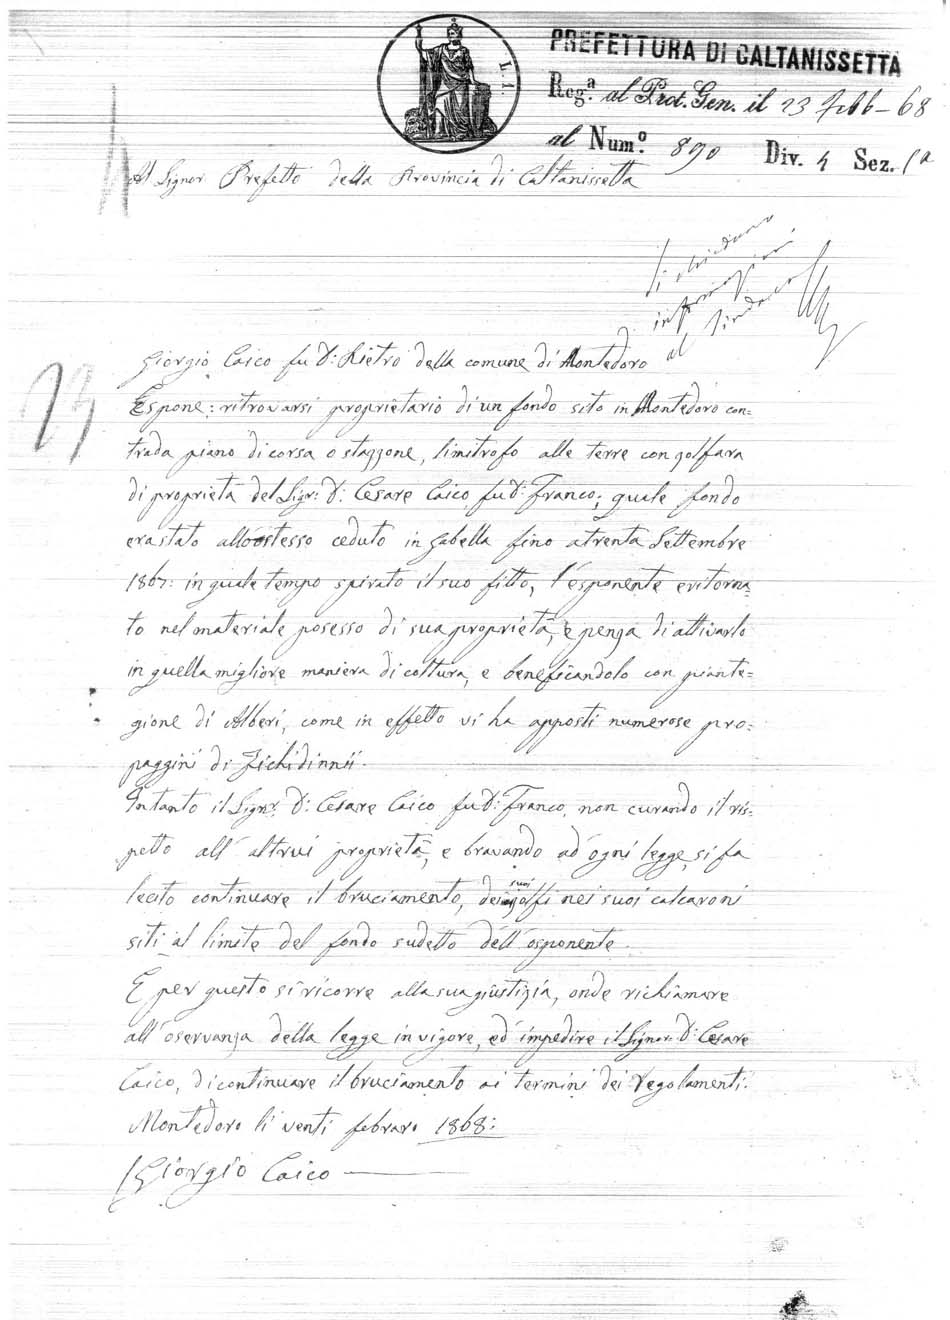 L. 1.
PREFETTURA DI CALTANISSETTA
Reg.ª al Prot. Gen. il 23 Febb - 68
al Num.º 890 Div. 4 Sez. 1ª
Al Signor Prefetto della Provincia di Caltanissetta
Si chiedano
informazioni
al Sindaco
Giorgio Caico fu Dn: Pietro della comune di Montedoro
23
Espone: ritrovarsi proprietario di un fondo sito in Montedoro con=
trada piano di corsa o stazzone, limitrofo alle terre con zolfara
di proprietà del Sigr: Dn: Cesare Caico fu Dn: Franco; quale fondo
era stato allo stesso ceduto in gabella fino a trenta Settembre
1867: in quale tempo spirato il suo fitto, l'esponente è ritorna=
to nel materiale posesso di sua proprietà, e penza di attivarlo
in quella migliore maniera di coltura, e beneficandolo con piante=
gione di Alberi, come in effetto vi ha apposti numerose pro=
paggini di Fichidinnii.
Intanto il Signr. Dn: Cesare Caico fu Dn: Franco, non curando il ris=
petto all'altrui proprietà, e bravando ad ogni legge, si fa
lecito continuare il bruciamento, dei suoi zolfi nei suoi calcaroni
siti al limite del fondo sudetto dell'esponente.
E per questo si ricorre alla sua giustizia, onde richiamare
all'oservanza della legge in vigore, ed impedire il Signor Dn: Cesare
Caico, di continuare il bruciamento ai termini dei regolamenti.
Montedoro li venti febraro 1868:
Giorgio Caico